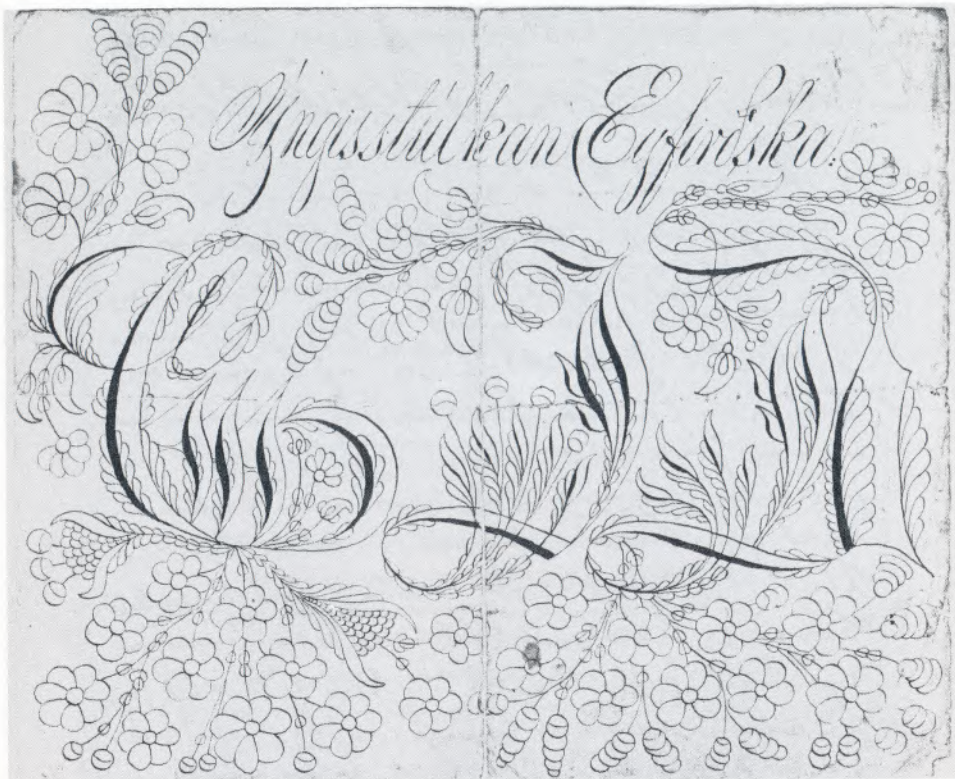 Ýngisstúlkan Eyfirðska.